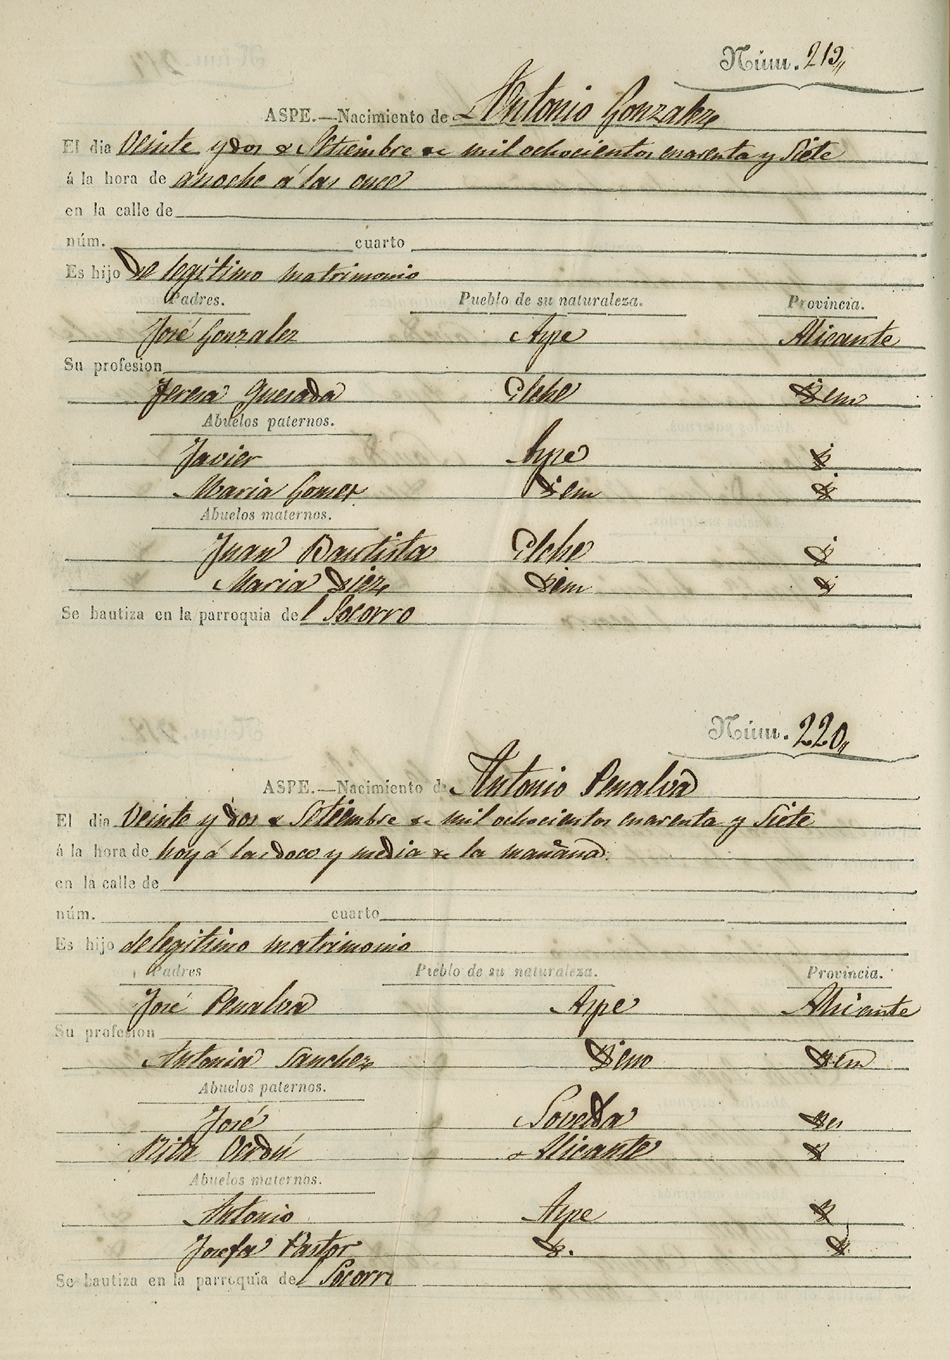 Núm. 219
ASPE.—Nacimiento de Antonio Gonzalez
El dia Veinte y dos de Setiembre de mil ochocientos cuarenta y Siete
á la hora de anoche á las once
en la calle de
núm. cuarto
Es hijo de legitimo matrimonio
Padres. Pueblo de su naturaleza. Provincia.
José Gonzalez Aspe Alicante
Su profesion
Teresa Quesada Elche Idem
Abuelos paternos.
Javier Aspe
Maria Gomez Idem
Abuelos maternos.
Juan Bautista Elche
Maria Diez Idem
Se bautiza en la parroquia del Socorro
Núm. 220
ASPE.—Nacimiento de Antonio Penalva
El dia Veinte y dos de Setiembre de mil ochocientos cuarenta y Siete
á la hora de hoy á las doce y media de la mañana
en la calle de
núm. cuarto
Es hijo de legitimo matrimonio
Padres Pueblo de su naturaleza. Provincia.
José Penalva Aspe Alicante
Su profesion
Antonia Sanchez Idem Idem
Abuelos paternos.
José Novelda
Rita Verdú Alicante
Abuelos maternos.
Antonio Aspe
Josefa Pastor
Se bautiza en la parroquia del Socorro